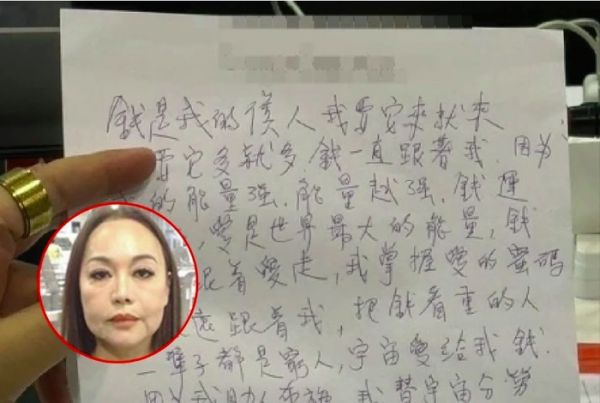 錢是我的僕人 我要它來就來.
要它多就多.錢一直跟著我.因为
的能量强.能量越强.錢運
,愛是世界最大的能量,錢
跟着愛走,我掌握愛的密碼
遠跟着我,把錢看重的人
一輩子都是窮人,宇宙愛給我錢.
我助人 我替宇宙分